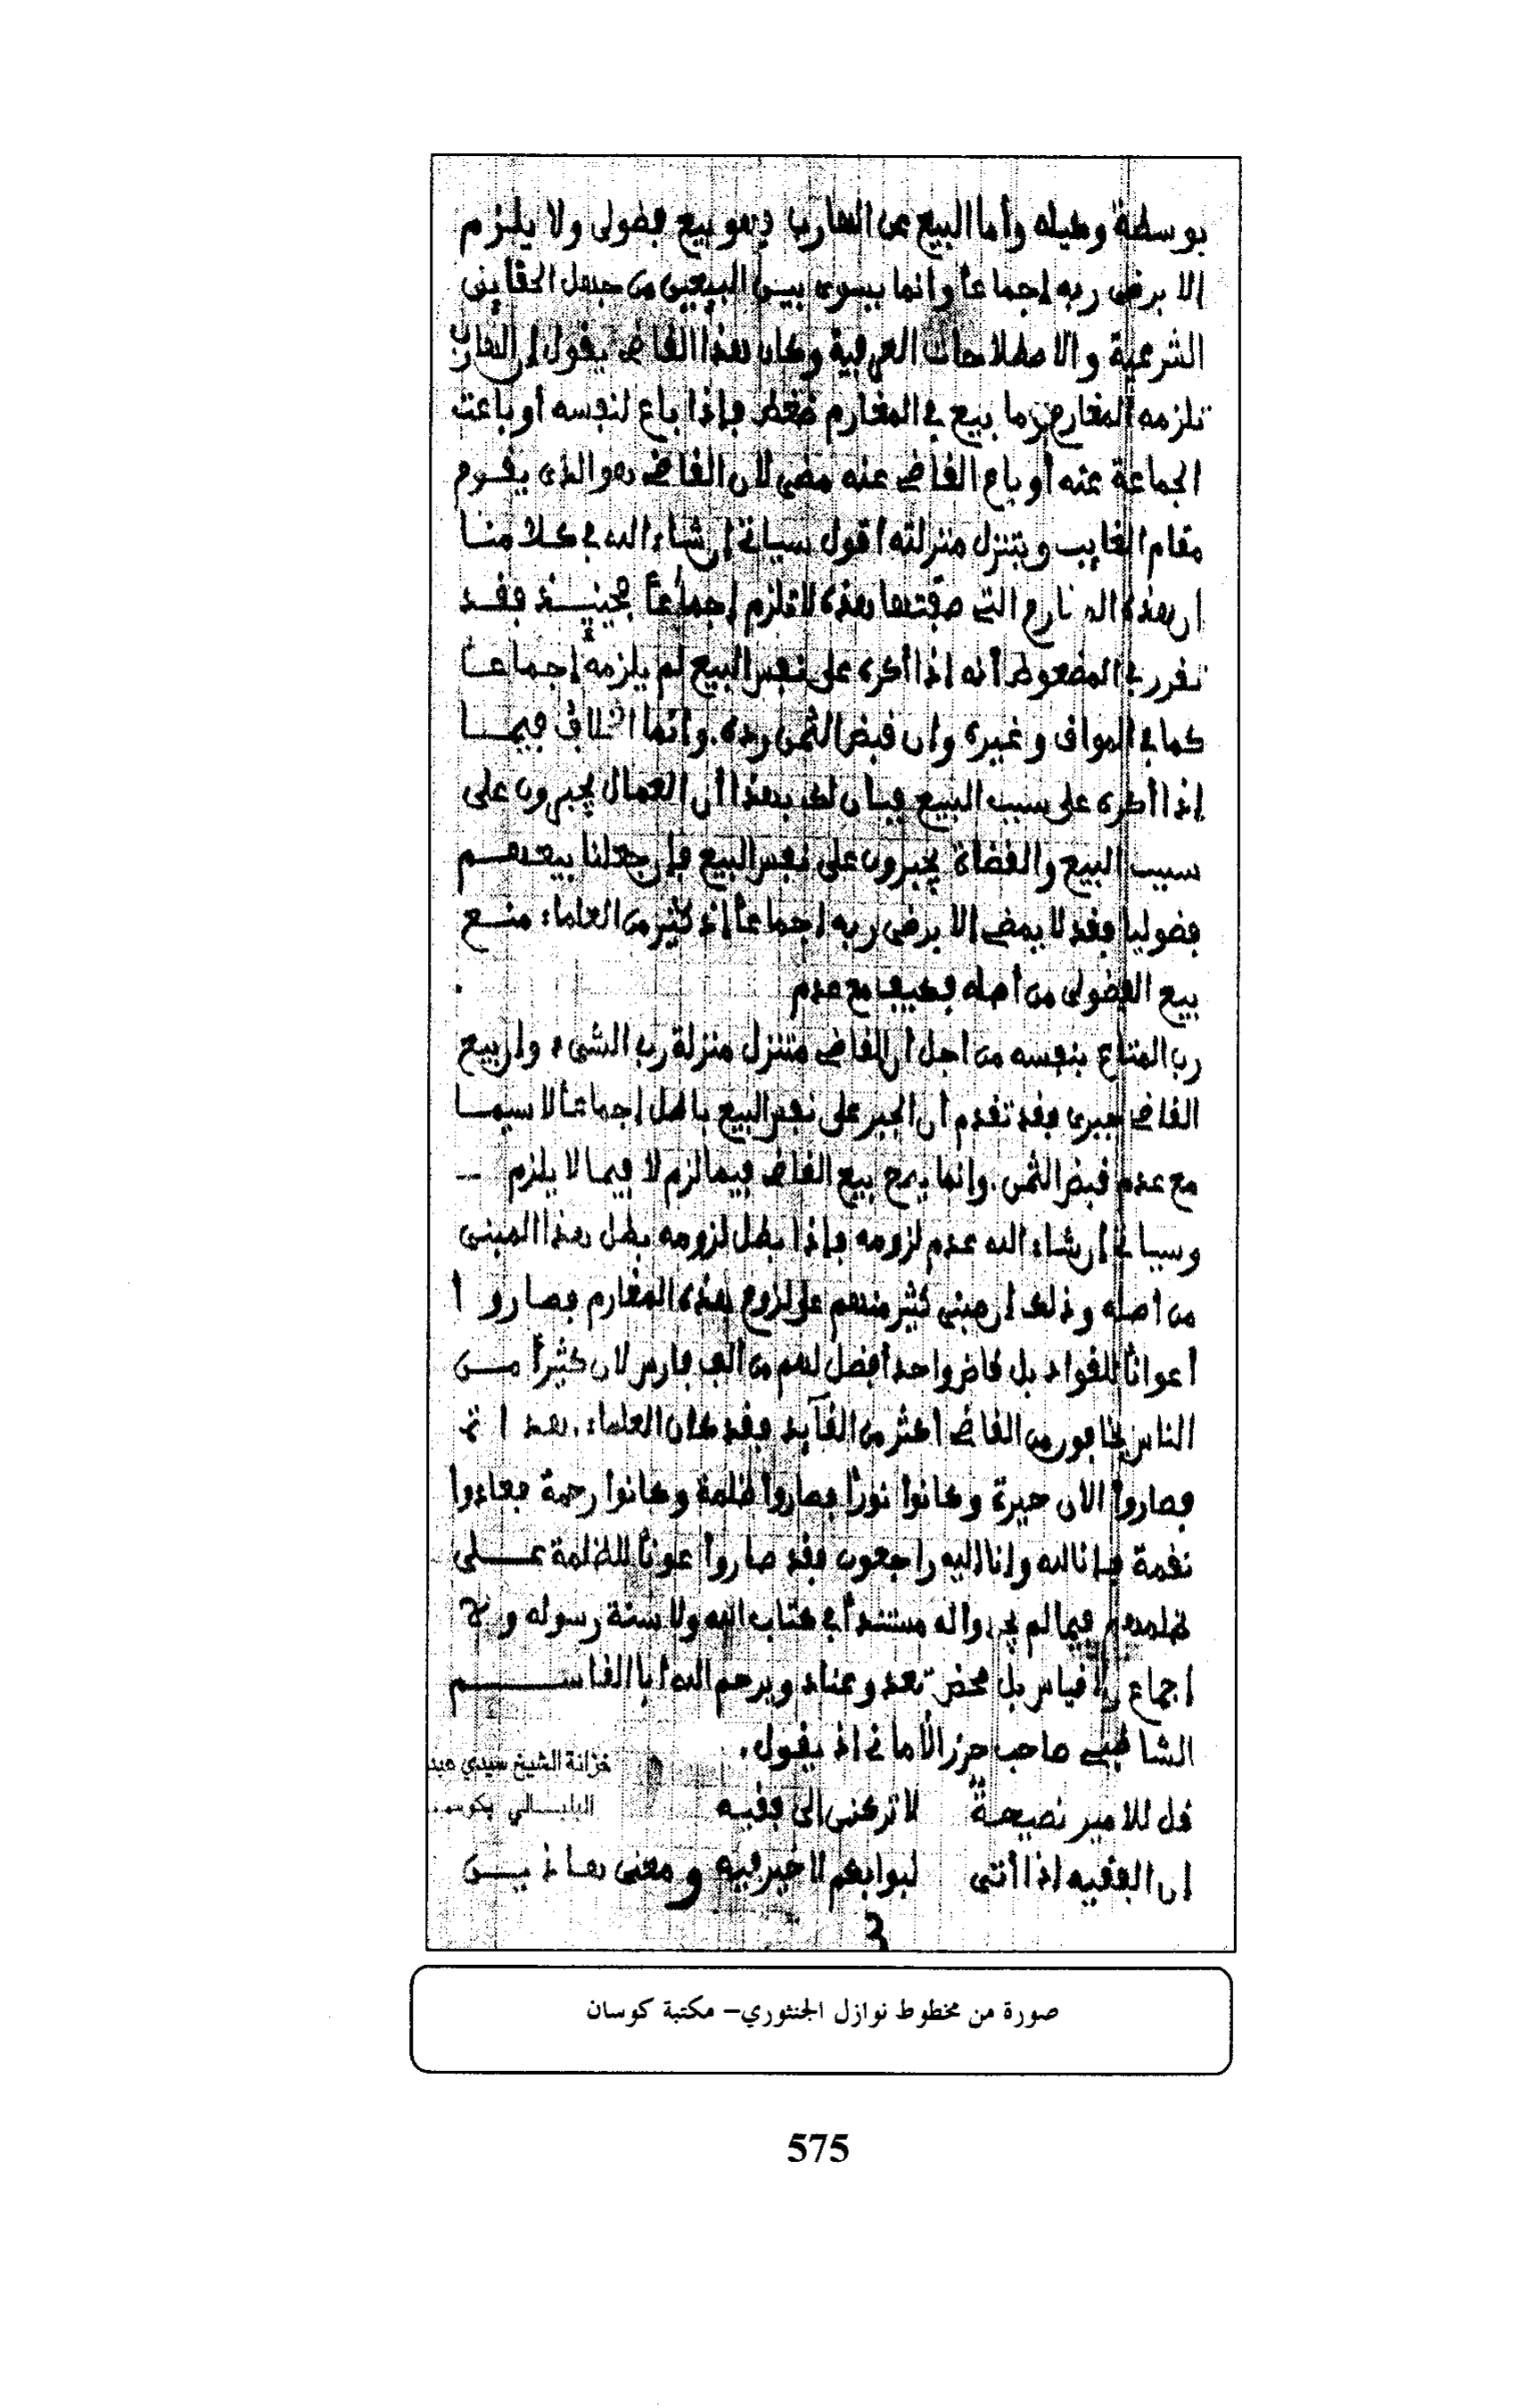 بوسطة وحيله وأما البيع عن الهارب فهو بيع فضولى ولا يلزم
إلا برضى ربه إجماعاً وانما يسوى بيـن البيعين من جهل الحقاينى
الشرعية والاصطلاحات العرفية وكان هذا القاضى يقول إن الهارب
تلزمه المغارم وما بيع في المغارم ضغط فإذا باع لنفسه أو باعت
الجماعة عنه أو باع القاضى عنه مضى لأن القاضى هو الذى يقوم
مقام الغايب ويتنزل منزلته اقول سياتى إن شاء الله في كلامنا
ان هذه التى صفتها هذه لا تلزم إجماعاً فحينيـذ فقـد
تقرر في المضغوط أنه إذا أكره على نفس البيع لم يلزمه إجماعـا
كما في المواق وغيره وان قبض الثمن رده. وانما الخلاف فيمـا
إذا أكره على سبب البيع فبان لك بهذا أن العمال يجبرون على
سبب البيع والقضاة يجبرون على نفس البيع فإن جعلنا بيعهـم
فضوليا فقد لا يمضى إلا برضى ربه إجماعاً إذ كثير من العلماء منـع
بيع الفضولى من أصله فكيف مع عدم
رب المتاع بنفسه من اجل أن القاضى متنزل منزلة رب الشىء وان بيع
القاضى جبرى فقد تقدم أن الجبر على نفس البيع باطل إجماعاً لا سيمـا
مع عدم قبض الثمن. وإنما يصح بيع القاضى فيما لزم لا فيما لا يلزم
وسياتى إن شاء الله عدم لزومه فإذا بطل لزومه بطل هذا المبنى
من أصله وذلك ان مبنى كثير منهم على لزوم هذه المغارم فصاروا
أعواناً للقواد بل قاض واحد أفضل لهم من ألف فارس لأن كثيراً مـن
الناس يخافون من القاضى اكثر من القآيد فقد كان العلماء
فصاروا الان حيرة وكانوا نوراً فصاروا ظلمة وكانوا رحمة فعادوا
نقمة فإنا لله وإنا إليه راجعون فقد صاروا عوناً للظلمة عـلى
ظلمهم فيما لم يجدوا له مستنداً في كتاب الله ولا سنة رسوله ولا
إجماع ولا قياس بل محض تعد وعناد ويرحم الله أبا القاســم
الشاطبى صاحب حرز الأمانى إذ يقول.
خزانة الشيخ سيدي عبد
البلبـالي بكوسـ..
قل للامير نصيحـةً لا تركننى إلى فقيـه
إن الفقيه إذا أتى لبوابهم لا خير فيه ومعنى هـاذيـن
3
صورة من مخطوط نوازل الجنثوري– مكتبة كوسان
575